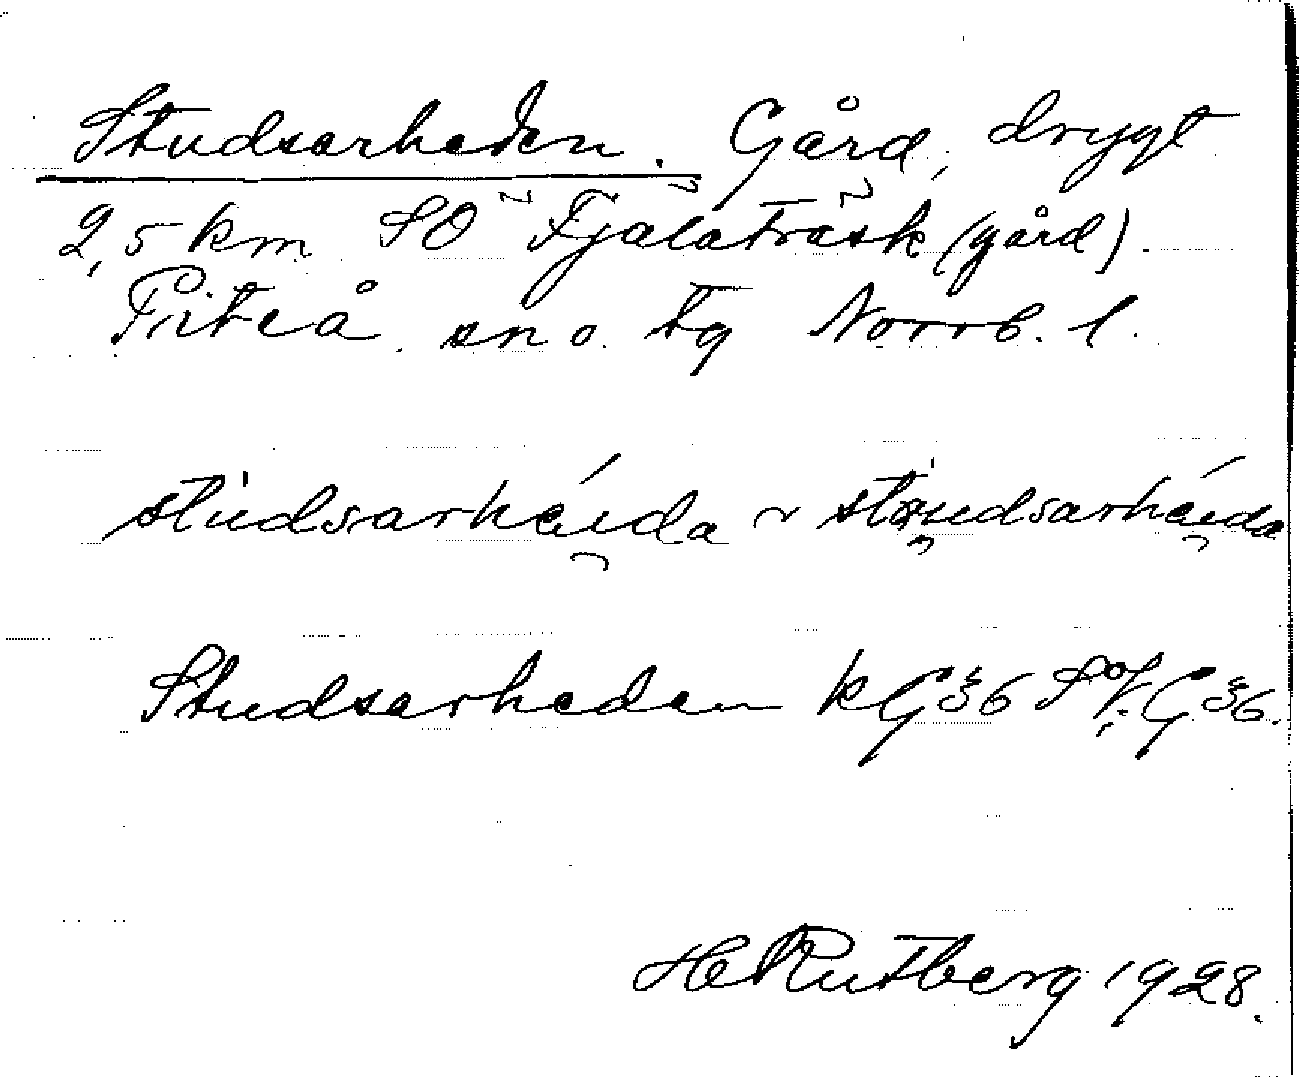 Studsarheden. Gård, drygt
2,5 km SO Fjäläträsk (gård).
Piteå sn o. tg Norrb. l.
studsarhéida ~ stöudsarhéida
Studsarheden k G 36
H Rutberg 1928.